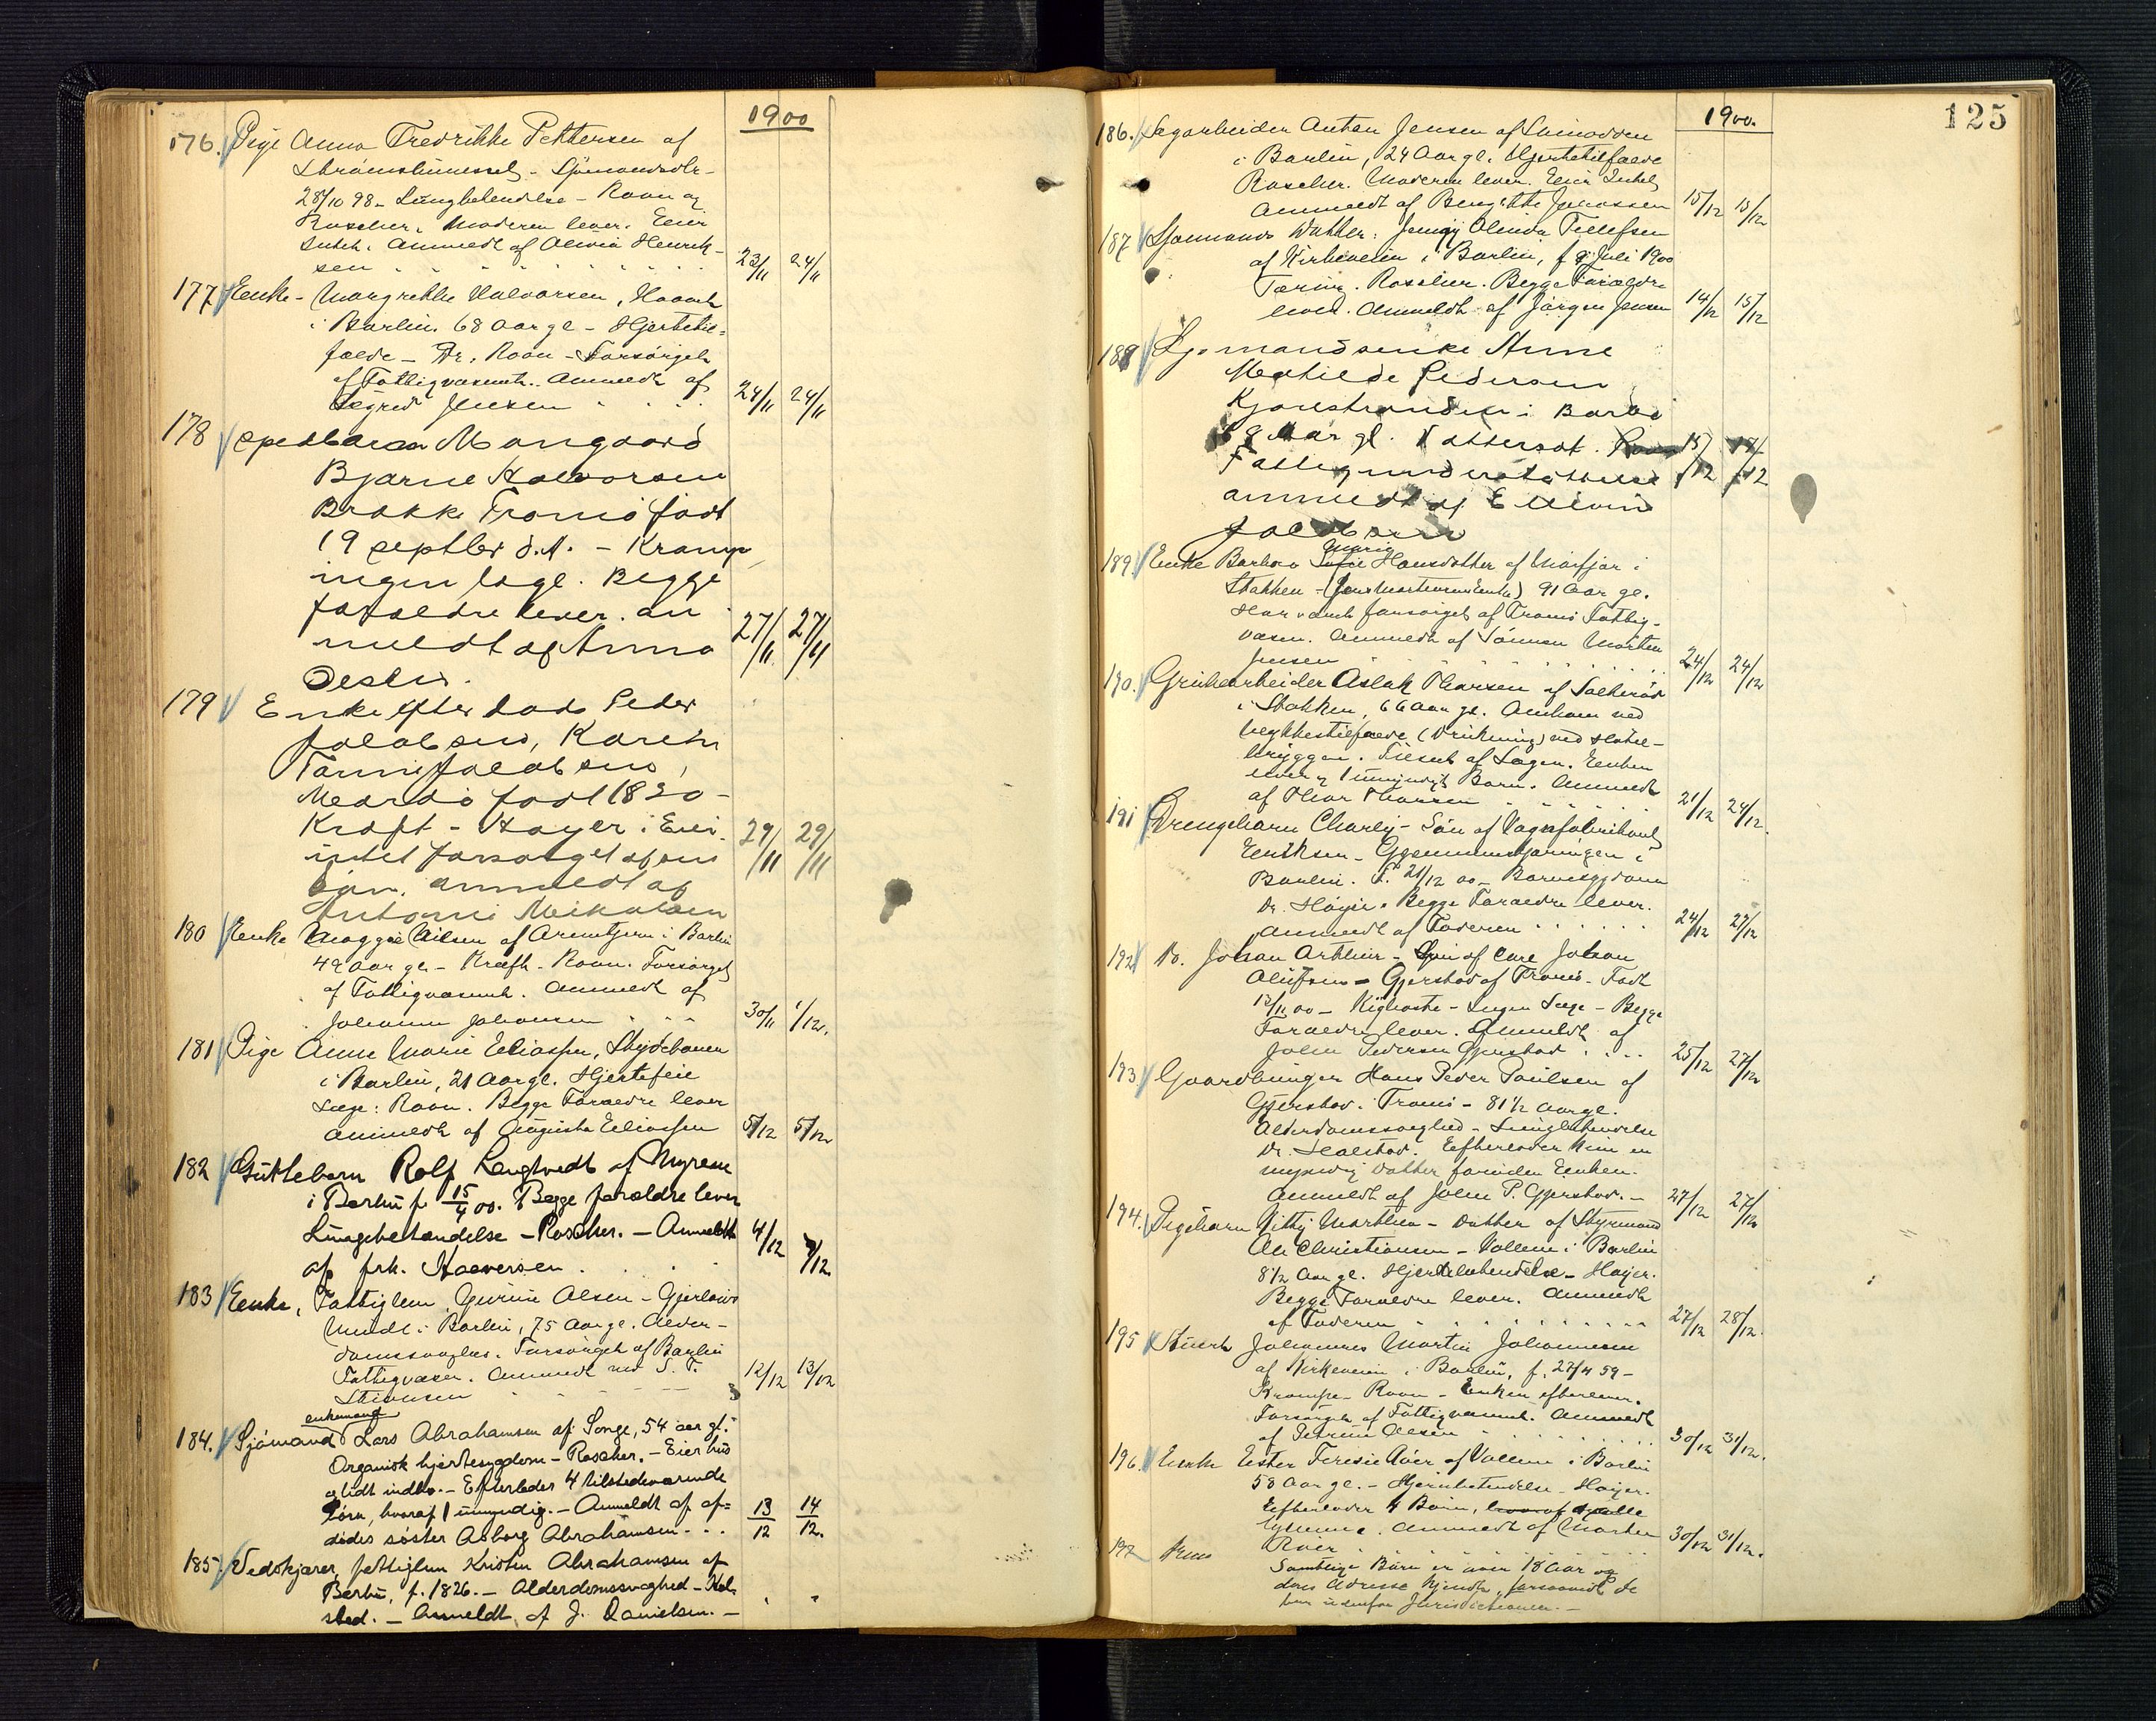 1900
176. Pige Anna Fredrikke Pettersen af
Strømsbunesset - Sjömandsdtr -
28/10 98 - Lungbetendelse - Roan og
Roscher. Moderen lever. Eier
Intet. Anmeldt af Olivia Henrik-
sen 23/11 24/11
177 Enke - Margrethe Halvorsen,
i Barbu. 68 Aar gl - Hjertetil-
fælde - Dr. Roan - Forsörget
af Fattigvæsenet. Anmeldt af
Sigrid Jensen 24/11 24/11
178 Spedbarn Mangaard
Bjarne Halvorsen
Brække Tromö födt
19 septbr d.A. - Krampe,
ingen læge. Begge
forældre lever. an
meldt af Anna
27/11 27/11
179 Enke efter döde Peder
Jakobsen, Karen
Tomine Jakobsen,
Mærdö födt 1820 -
Kræft - Höyer. Eier
intet forsörget af sin 29/11 29/11
Sön. anmeldt af
Antonie Mikalsen
180 Enke Maggie Nilsen af i Barbu
49 aar gl - Kræft - Roan. Forsörget
af Fattigvæsenet. Anmeldt af
Johanne Johansen 30/11 1/12.
181 Pige Anne Marie Eliassen, Skydebanen
i Barbu, 21 Aar gl. Hjertefeil
Læge: Roan. Begge Forældre lever
anmeldt af Augusta Eliassen 5/12 5/12
182 Guttebarn Rolf Langtvedt af Myrene
i Barbu f. 15/4 00. Begge forældre lever
Lungebetændelse - Roscher. - Anmeldt 4/12 7/12
af frk. Halvorsen
183 Enke, Fattiglem, Gurine Olsen -
i Barbu, 75 Aar gl. Alder-
domssvaghed. Forsörget af Barbu
Fattigvæsen. Anmeldt ved S. T. 12/12 13/12
Stiansen
enkemand
184. Sjömand Lars Abrahamsen af Songe, 54 aar gl.
Organisk hjertesygdom - Roscher. - Eier hus
og lidt indbo. - Efterlader 4 tilstedeværende
börn, hvoraf 1 umyndig. - Anmeldt af af-
dödes söster Asborg Abrahamsen - . . 13/12 14/12.
185. Vedskjærer, fattiglem Kristen Abrahamsen af
Barbu, f. 1826. - Alderdomssvaghed - Heal-
stad. - Anmeldt af J. Danielsen. -
125
1900.
186. Sagarbeider Anton Jensen af
i Barbu, 24 Aar gl. Hjertetilfælde
Roscher. Moderen lever. Eier Intet
Anmeldt af Bengitte Jonassen 15/12 15/12
187 Sjömands Datter: Jenny Olinda Tellefsen
af Kirkeveien i Barbu, f 9 Juli 1900
Tæring. Roscher. Begge Forældre
lever. Anmeldt af Jörgen Jensen 14/12 15/12
188 Sjömandsenke Anne
Mathilde Pedersen
Kjonstranden i Barbu
Aar gl. 15/12 17/12
Fattigunderstöttelse
anmeldt af Ellevine
Jakobsen
Marie
189. Enke Barbara Sofie Hansdatter af i
Stokken - (Jens Mortensens Enke) 91 Aar gl.
Har været forsörget af Tromö Fattig-
væsen. Anmeldt af Sönnen Morten
Jensen 24/12 24/12
190. Grubearbeider Aslak Thorsen af
i Stokken, 66 Aar gl. Omkom ved
ulykkestilfælde (Drukning) ved Hotel-
bryggen. Tilseet af Lægen. Enken
lever og 1 umyndigt Barn. Anmeldt
af Thor Thorsen 21/12 24/12.
191 Drengebarn Charly - Sön af Vognfabrikant
Eriksen - Gjennemskjæringen i
Barbu. F. 21/12 00 - Barnesygdom
Dr. Höyer. Begge Forældre lever.
Anmeldt af Faderen 24/12 27/12
192 Do. Johan Arthur - Sön af Carl Johan
Olufsen - Gjerstad af Tromö. Födt
13/11 00 - Kighoste - Ingen Læge - Begge
Forældre lever. Anmeldt af
John Pedersen Gjerstad 25/12 27/12
193 Gaardbruger Hans Peder Poulsen af
Gjerstad. Tromö - 81 1/2 Aar gl.
Alderdomssvaghed - Lungebetendelse
Dr. Healstad. Efterlader kun en
myndig datter foruden Enken.
Anmeldt af John P. Gjerstad. - 27/12 27/12
194. Pigebarn Kitty Marthea - Datter af Styrmand
Ole Christiansen - Vollene i Barbu
8 1/2 Aar gl. Hjertebetendelse - Höyer.
Begge Forældre lever. Anmeldt
af Faderen 27/12 28/12.
195 Stuert Johannes Martin Johannesen
af Kirkeveien i Barbu, f. 27/4 59 -
Krampe - Roan - Enken efterlever.
Forsörget af Fattigvæsenet. Anmeldt
af Petrine Olsen 30/12 31/12.
196. Enke Ester Teresie Röer af Vollene i Barbu
58 Aar gl. - Hjernebetendelse - Höyer.
Efterlader 4 Börn, hvoraf
Anmeldt af Morten
Röer 30/12 31/12.
197
Samtlige Börn er over 18 Aar og
deres Adresse kjendt, forsaavidt de
bor udenfor Jurisdictionen. -